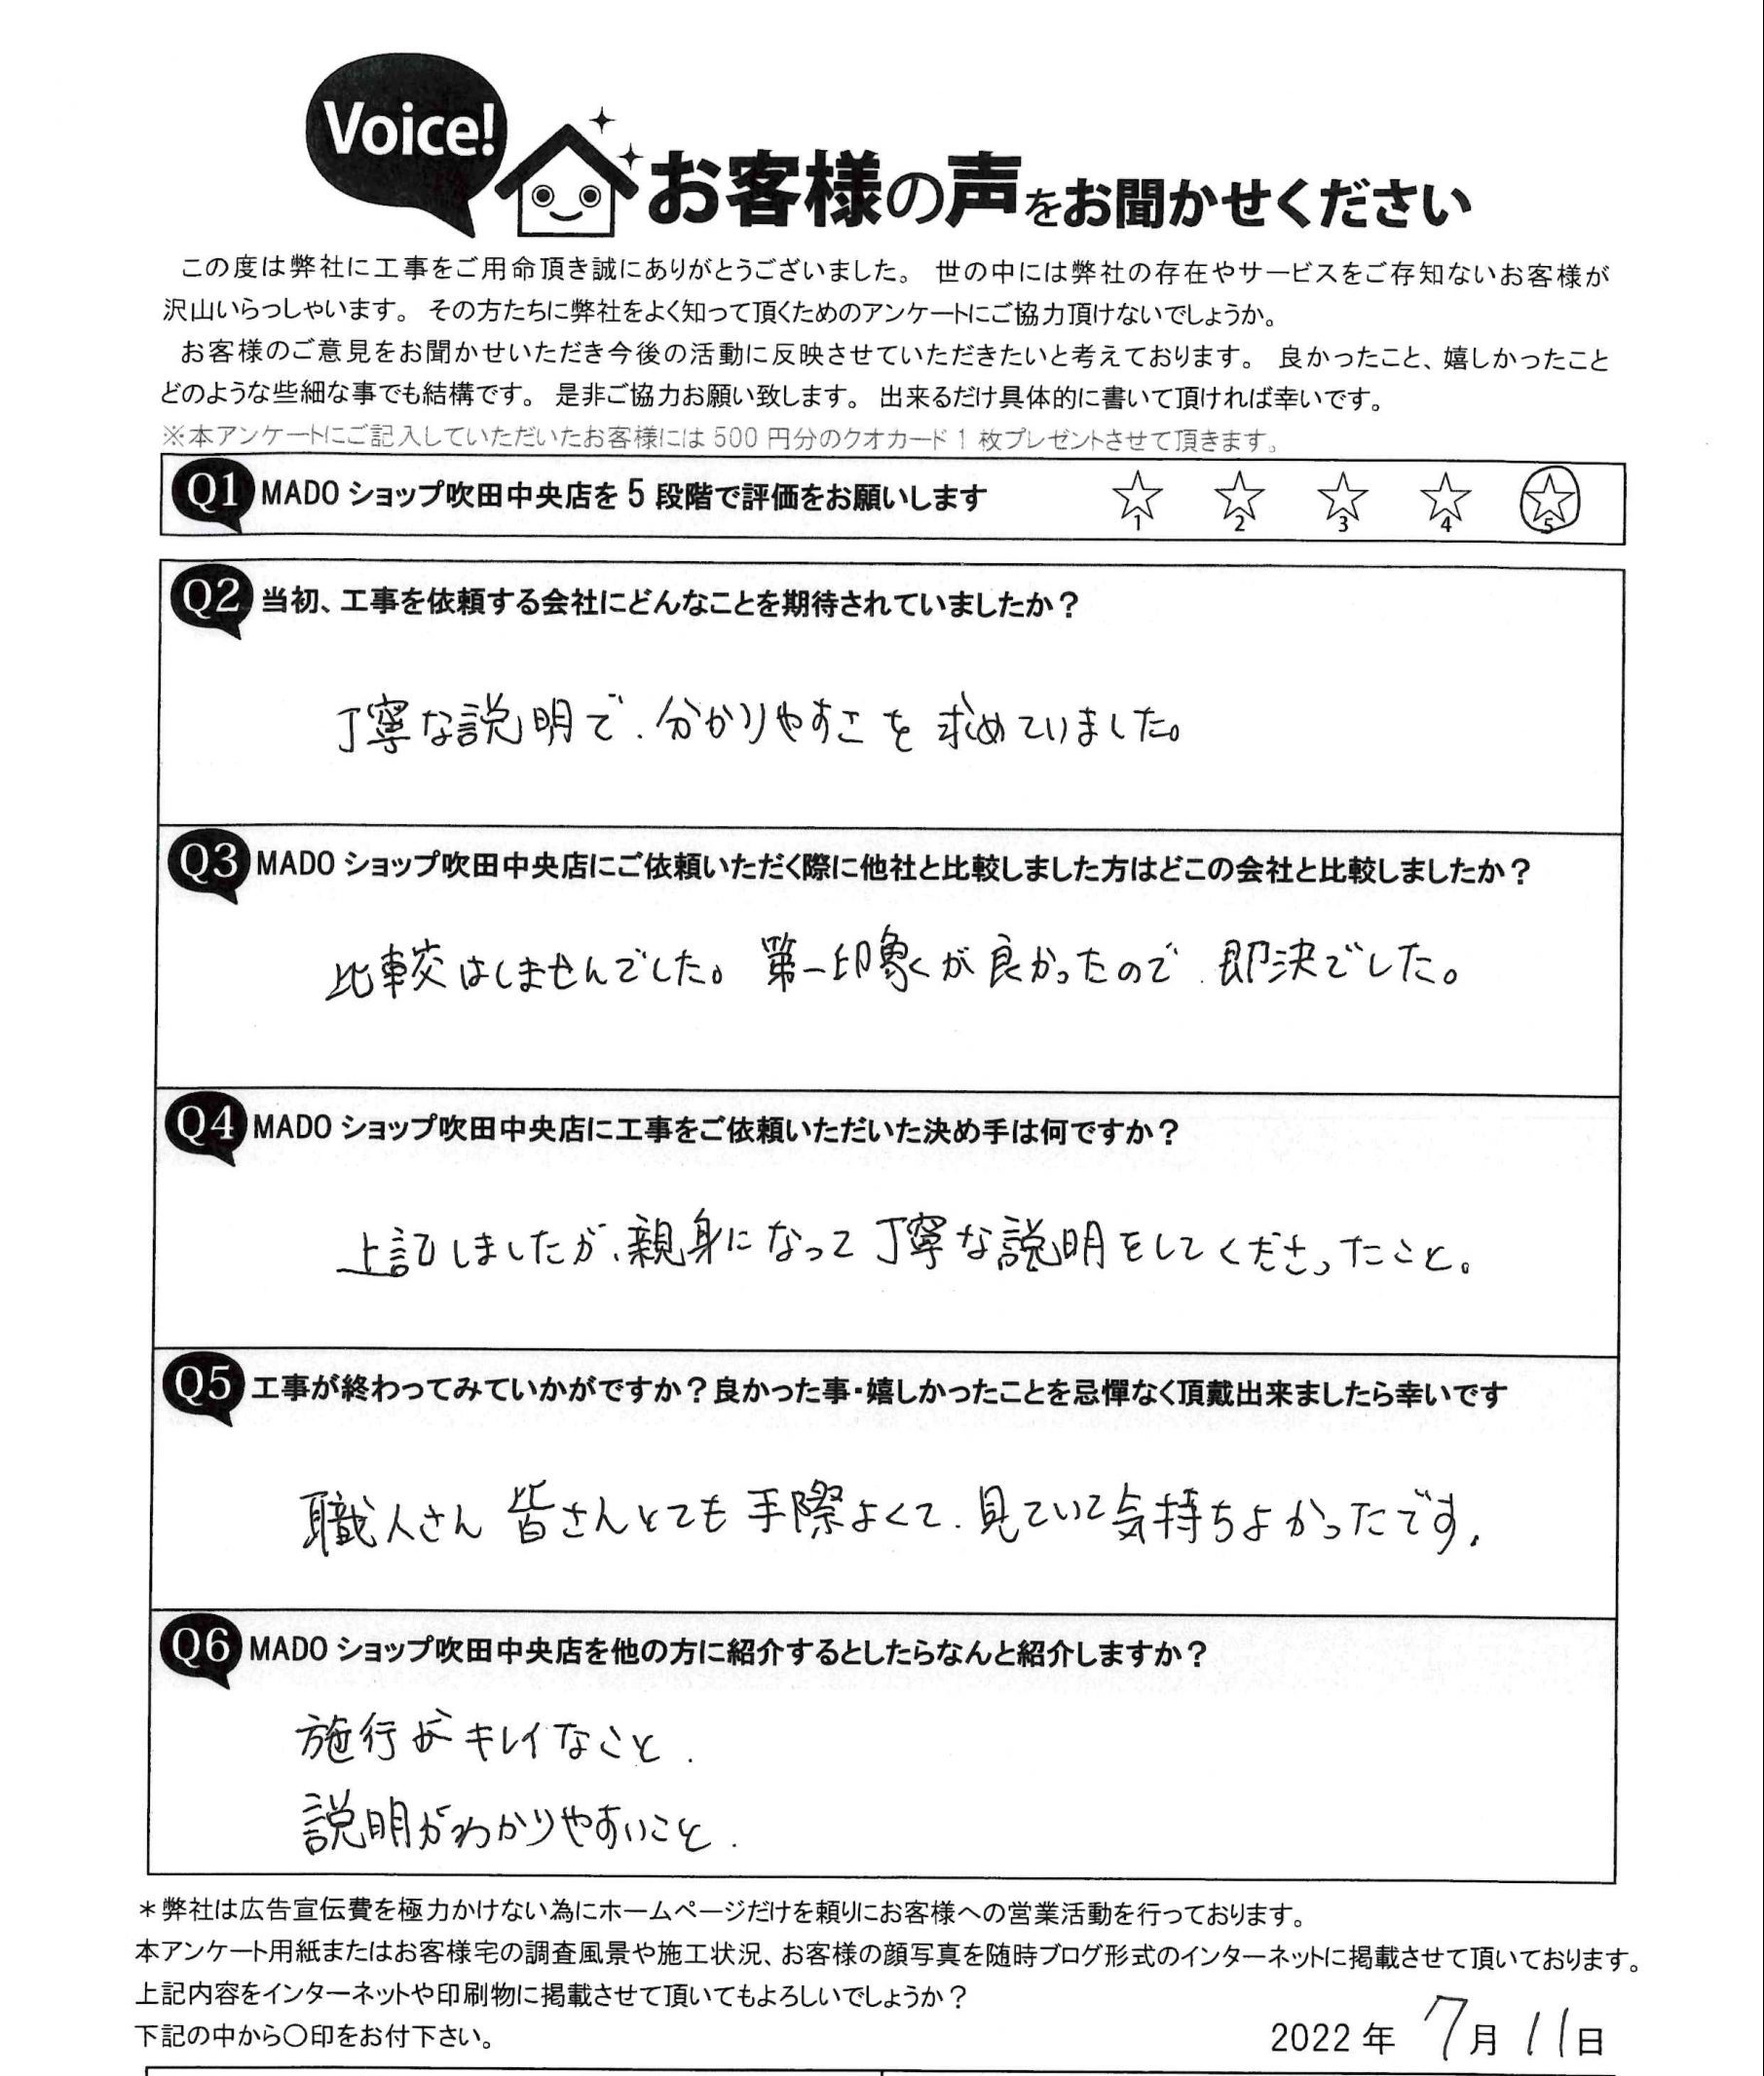 Voice!
お客様の声をお聞かせください
この度は弊社に工事をご用命頂き誠にありがとうございました。 世の中には弊社の存在やサービスをご存知ないお客様が
沢山いらっしゃいます。 その方たちに弊社をよく知って頂くためのアンケートにご協力頂けないでしょうか。
お客様のご意見をお聞かせいただき今後の活動に反映させていただきたいと考えております。 良かったこと、嬉しかったこと
どのような些細な事でも結構です。 是非ご協力お願い致します。 出来るだけ具体的に書いて頂ければ幸いです。
※本アンケートにご記入していただいたお客様には 500 円分のクオカード 1 枚プレゼントさせて頂きます。
Q1 MADO ショップ吹田中央店を 5 段階で評価をお願いします ☆1 ☆2 ☆3 ☆4 ☆5
Q2 当初、工事を依頼する会社にどんなことを期待されていましたか？
丁寧な説明で、分かりやすさを求めていました。
Q3 MADO ショップ吹田中央店にご依頼いただく際に他社と比較しました方はどこの会社と比較しましたか？
比較はしませんでした。第一印象が良かったので、即決でした。
Q4 MADO ショップ吹田中央店に工事をご依頼いただいた決め手は何ですか？
上記しましたが、親身になって丁寧な説明をしてくださったこと。
Q5 工事が終わってみていかがですか？良かった事・嬉しかったことを忌憚なく頂戴出来ましたら幸いです
職人さん皆さんとても手際よくて、見ていて気持ちよかったです。
Q6 MADO ショップ吹田中央店を他の方に紹介するとしたらなんと紹介しますか？
施行がキレイなこと.
説明がわかりやすいこと.
＊弊社は広告宣伝費を極力かけない為にホームページだけを頼りにお客様への営業活動を行っております。
本アンケート用紙またはお客様宅の調査風景や施工状況、お客様の顔写真を随時ブログ形式のインターネットに掲載させて頂いております。
上記内容をインターネットや印刷物に掲載させて頂いてもよろしいでしょうか？
下記の中から〇印をお付下さい。
2022 年 7月 11日